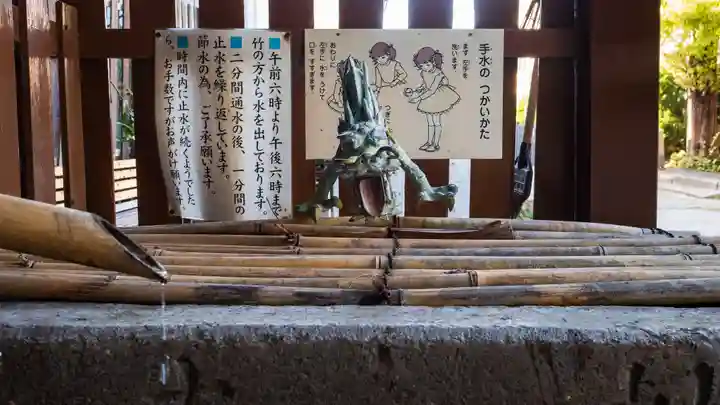 ■午前六時より午後六時まで
竹の方から水を出しております。
■二分間通水の後、一分間の
止水を繰り返しています。
節水の為、ご了承願います。
■時間内に止水が続くようでした
ら。お手数ですがお声がけ願います。
手水の つかいかた
まず 左手を
洗います。
つぎに
おわりに
左手に 水を うけて
口を すすぎます。